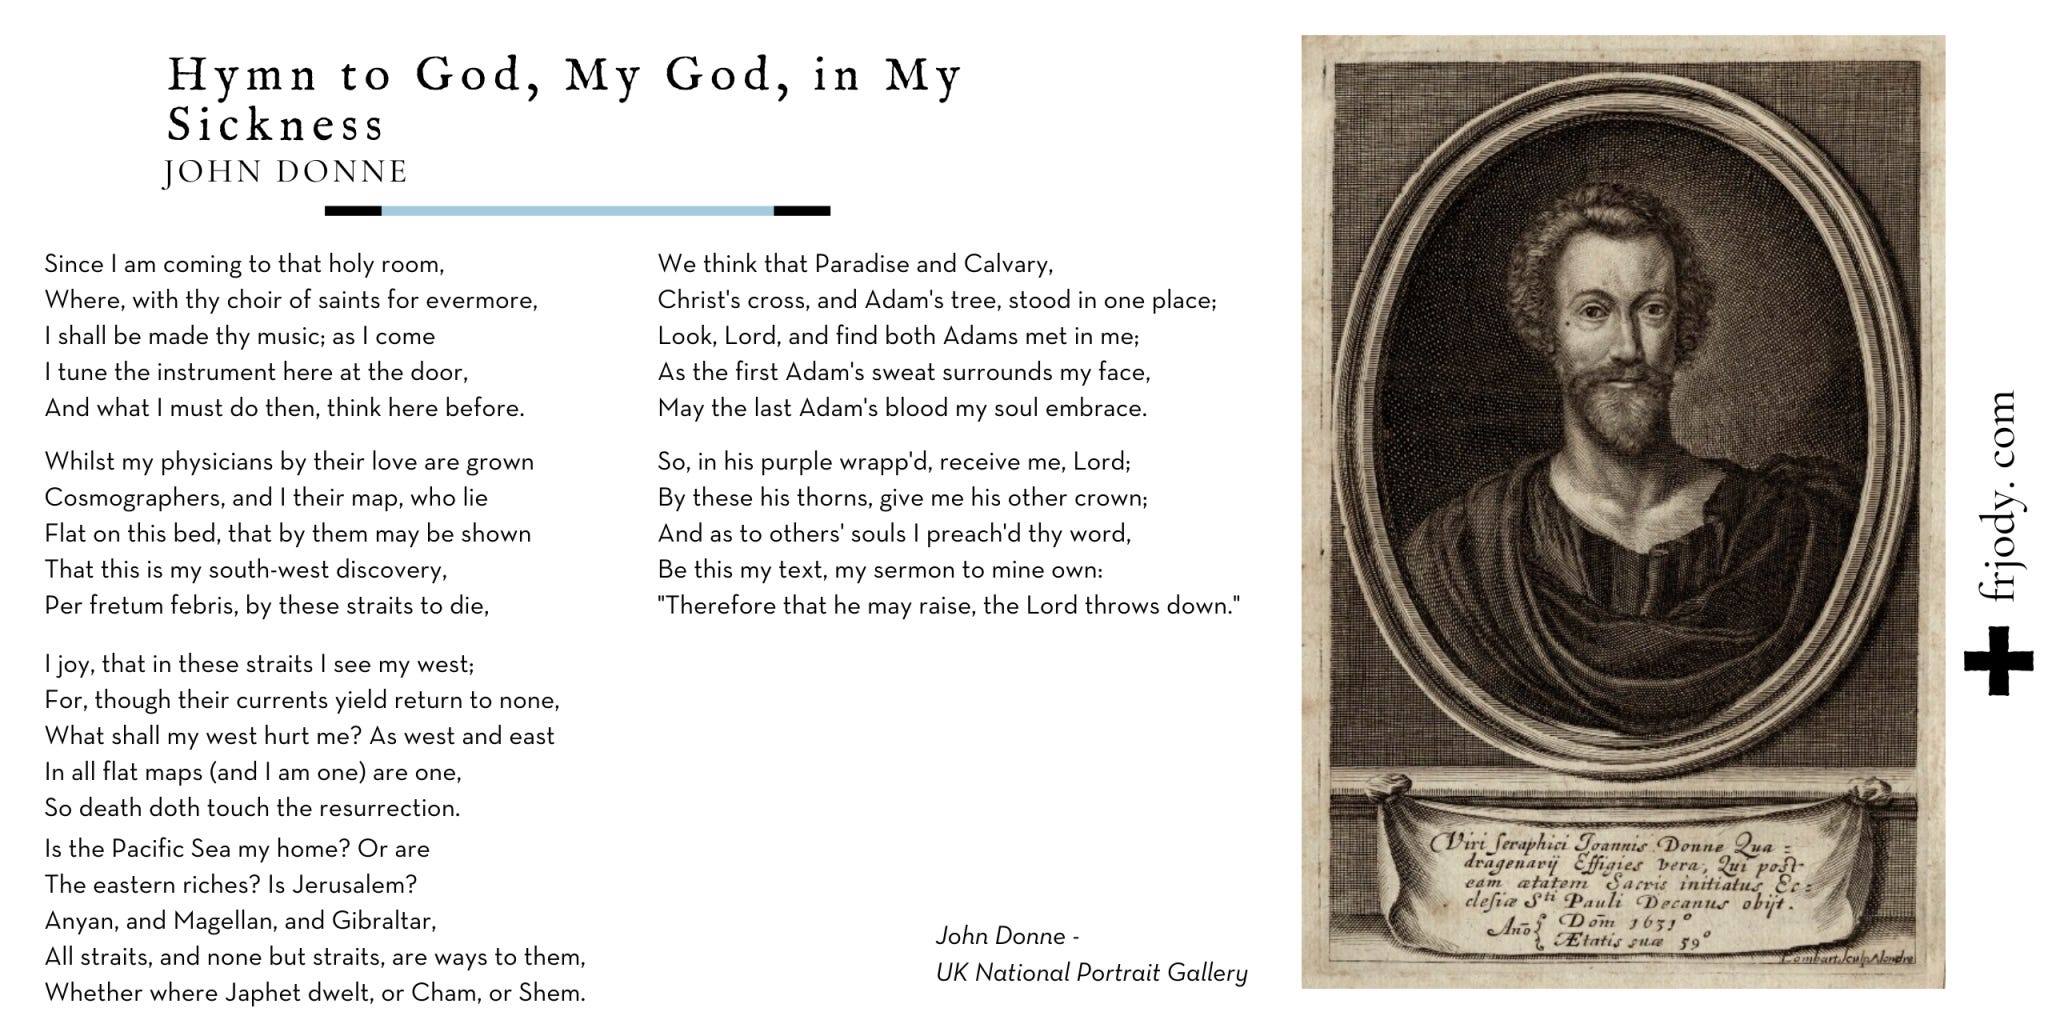 Hymn to God, My God, in My
Sickness
JOHN DONNE
Since I am coming to that holy room,
Where, with thy choir of saints for evermore,
I shall be made thy music; as I come
I tune the instrument here at the door,
And what I must do then, think here before.
Whilst my physicians by their love are grown
Cosmographers, and I their map, who lie
Flat on this bed, that by them may be shown
That this is my south-west discovery,
Per fretum febris, by these straits to die,
I joy, that in these straits I see my west;
For, though their currents yield return to none,
What shall my west hurt me? As west and east
In all flat maps (and I am one) are one,
So death doth touch the resurrection.
Is the Pacific Sea my home? Or are
The eastern riches? Is Jerusalem?
Anyan, and Magellan, and Gibraltar,
All straits, and none but straits, are ways to them,
Whether where Japhet dwelt, or Cham, or Shem.
We think that Paradise and Calvary,
Christ's cross, and Adam's tree, stood in one place;
Look, Lord, and find both Adams met in me;
As the first Adam's sweat surrounds my face,
May the last Adam's blood my soul embrace.
So, in his purple wrapp'd, receive me, Lord;
By these his thorns, give me his other crown;
And as to others' souls I preach'd thy word,
Be this my text, my sermon to mine own:
"Therefore that he may raise, the Lord throws down."
John Donne -
UK National Portrait Gallery
Viri seraphici Joannis Donne Qua =
dragenarij Effigies vera, Qui post
eam ætatem Sacris initiatus Ec=
clesiæ Sti Pauli Decanus obijt.
Año { Dom̄ 1631°
Ætatis suæ 59°
Lombart sculp
frjody. com